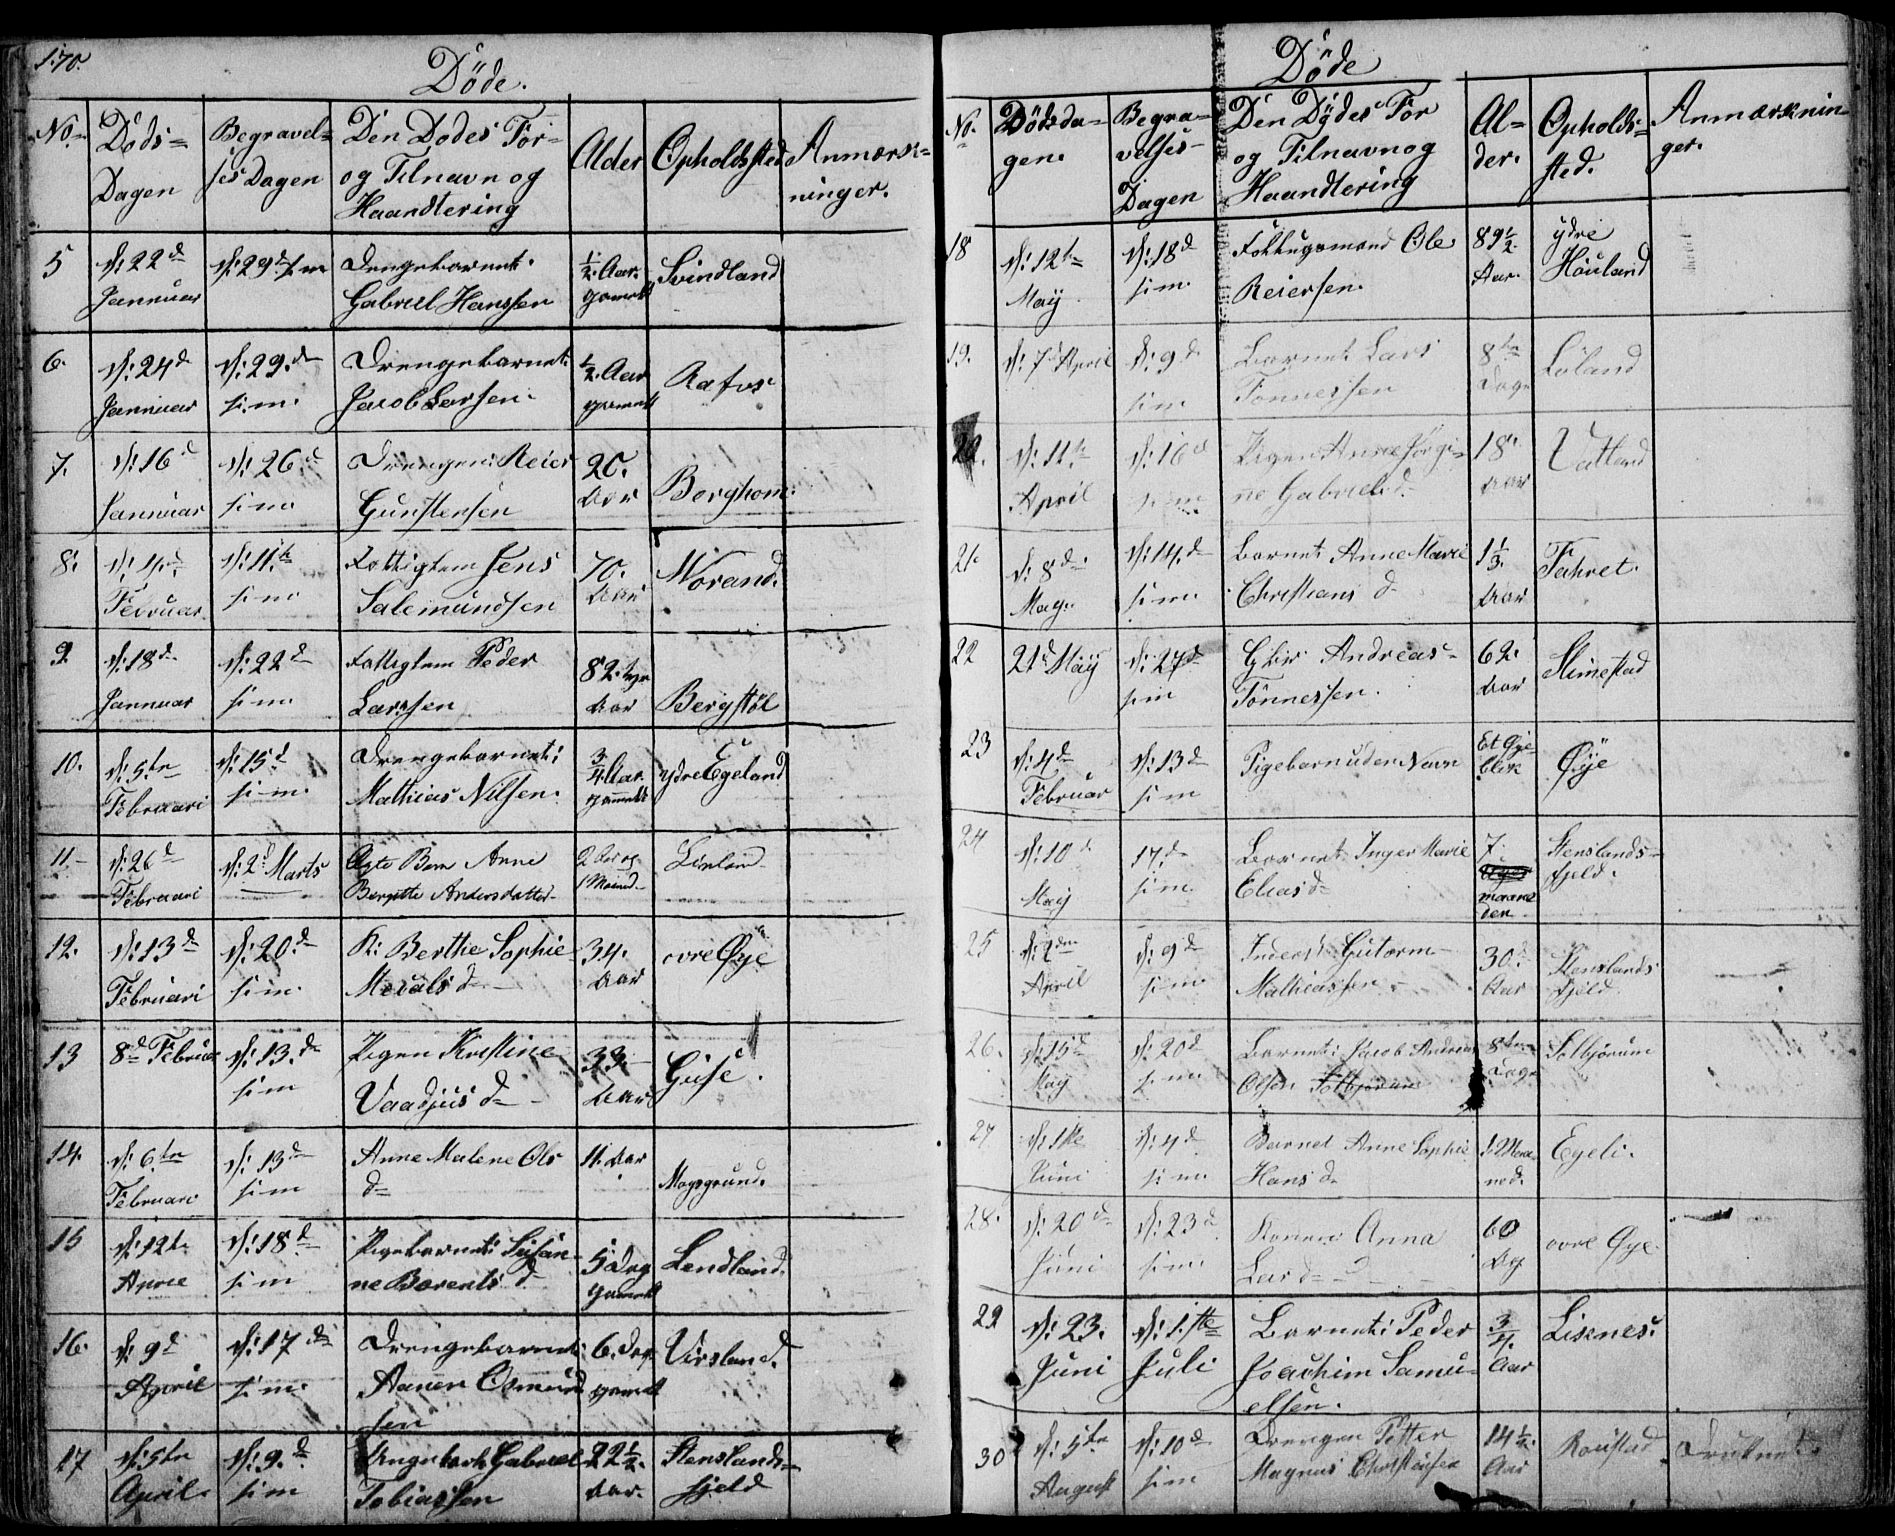 170.
Döde.
No.
Döds-
Dagen
Begravel=
ses Dagen
Den Dødes For-
og Tilnavn og
Haandtering
Alder
Opholdsted
Anmærk=
ninger.
5
d: 22d
Januuar
d: 29d s.m
Drengebarnet
Gabriel Hanssen
1/2 Aar
gammelt
Svindland
6.
d: 24d
Januuar
d: 29d
s.m.
Drengebarnet
Jacob Larsen
1/2 Aar
gammelt
Rafos
7.
d: 16d
Januuar
d: 26d
s.m.
Drengen Reier
Gunstensen
20.
Aar
8.
Februar
d: 11te
s.m.
Fattiglem Jens
Salemundsen
70.
Aar
9
d: 18d
Januuar
d: 22d
s.m.
Fattiglem Peder
Larssen
82
Aar
Bergstøl
10.
d: 5te
Februari
d: 15d
s.m.
Drengebarnet
Mathias Nilsen.
3/4 Aar
gammelt
ydre Egeland
11.
d: 26d
Februari
d: 2d Marts
Ægte Barn Anne
Bergitte Andersdatter
2 Aar og
1 Maaned
12.
d: 13d
Februari
d: 20d
s.m.
K: Berthe Sophie
34.
Aar
øvre Øye
13
8d Februar
d: 13d
s.m
Pigen Kirstine
d
33
Aar
14.
d: 6te
Februari
d: 13d
s.m
Anne Malene Ols
d
11. Aar
15
d: 12te
April
d: 18d
s.m
Pigebarnet Susan-
ne Barents d
5 Dag
gammelt
Lendland
16.
d: 9d
April
d: 17d
s.m.
Drengebarnet
Aanen Osmund
sen
6. Dage
gammelt
Virsland.
17
d: 5te
April
d: 9d
s.m
Gabriel
Tobiassen
22 1/2
Aar.
Stenslands-
fjeld
Døde
No.
Dödsda-
gen.
Begra-
velses-
Dagen
Den Dødes For
og Tilnavn og
Haandtering
Al=
der.
Opholds=
sted.
Anmærknin=
ger.
18
d: 12te
Maÿ
d: 18d
s.m.
Ole
Reiersen.
89 1/2
Aar.
ydre
Houland
19.
d: 7d April
d: 9d
s.m
Barnet Lars
Tønnessen
8te
Dage
Loland
20.
d: 11te
April
d: 16d
s.m
Pigen Anne Jørgi-
ne Gabriels d
18
Aar
Vatland
21.
d: 8d
May
d: 14d
s.m.
Barnet Anne Marie
Christians d
1 1/3
Aar
22
21d Maÿ
d: 27d
s.m
Andreas
Tønnessen.
62.
Aar
Slimestad
23
d: 4d
Februar
d: 13d
s.m
Pigebarn uden Navn
Et Øye-
blik
Øÿe
24
d: 10d
Maÿ
17d
s.m.
Barnet Inger Marie
Elias d
7
maane
der
Stenslands-
fjeld.
25
April
d: 9d
s.m.
Inderst Gutorm
Mathiassen
30
Aar
Stenslands
fjeld
26.
d: 15d
May
d: 20d
s.m
Barnet Jacob Andreas
Olsen
8te
Dage
Solbjørum
27
d: 1te
Juni
d: 4d
s.m.
Barnet Anne Sophie
Hans d
1. Maa
ned.
Egeli.
28.
d: 20d
Juni
d: 23d
s.m
Konen Anna
Lars d
60
øvre Øye
29
d: 23.
Juni
d: 1ste
Juli
Barnet Peder
Joachim Samu-
elsen.
3/4
Aar
Lisknes.
30
d: 5te
August
d: 10d
s.m
Drengen Petter
Magnus Christensen
14 1/2
Aar
Roustad
Druknet